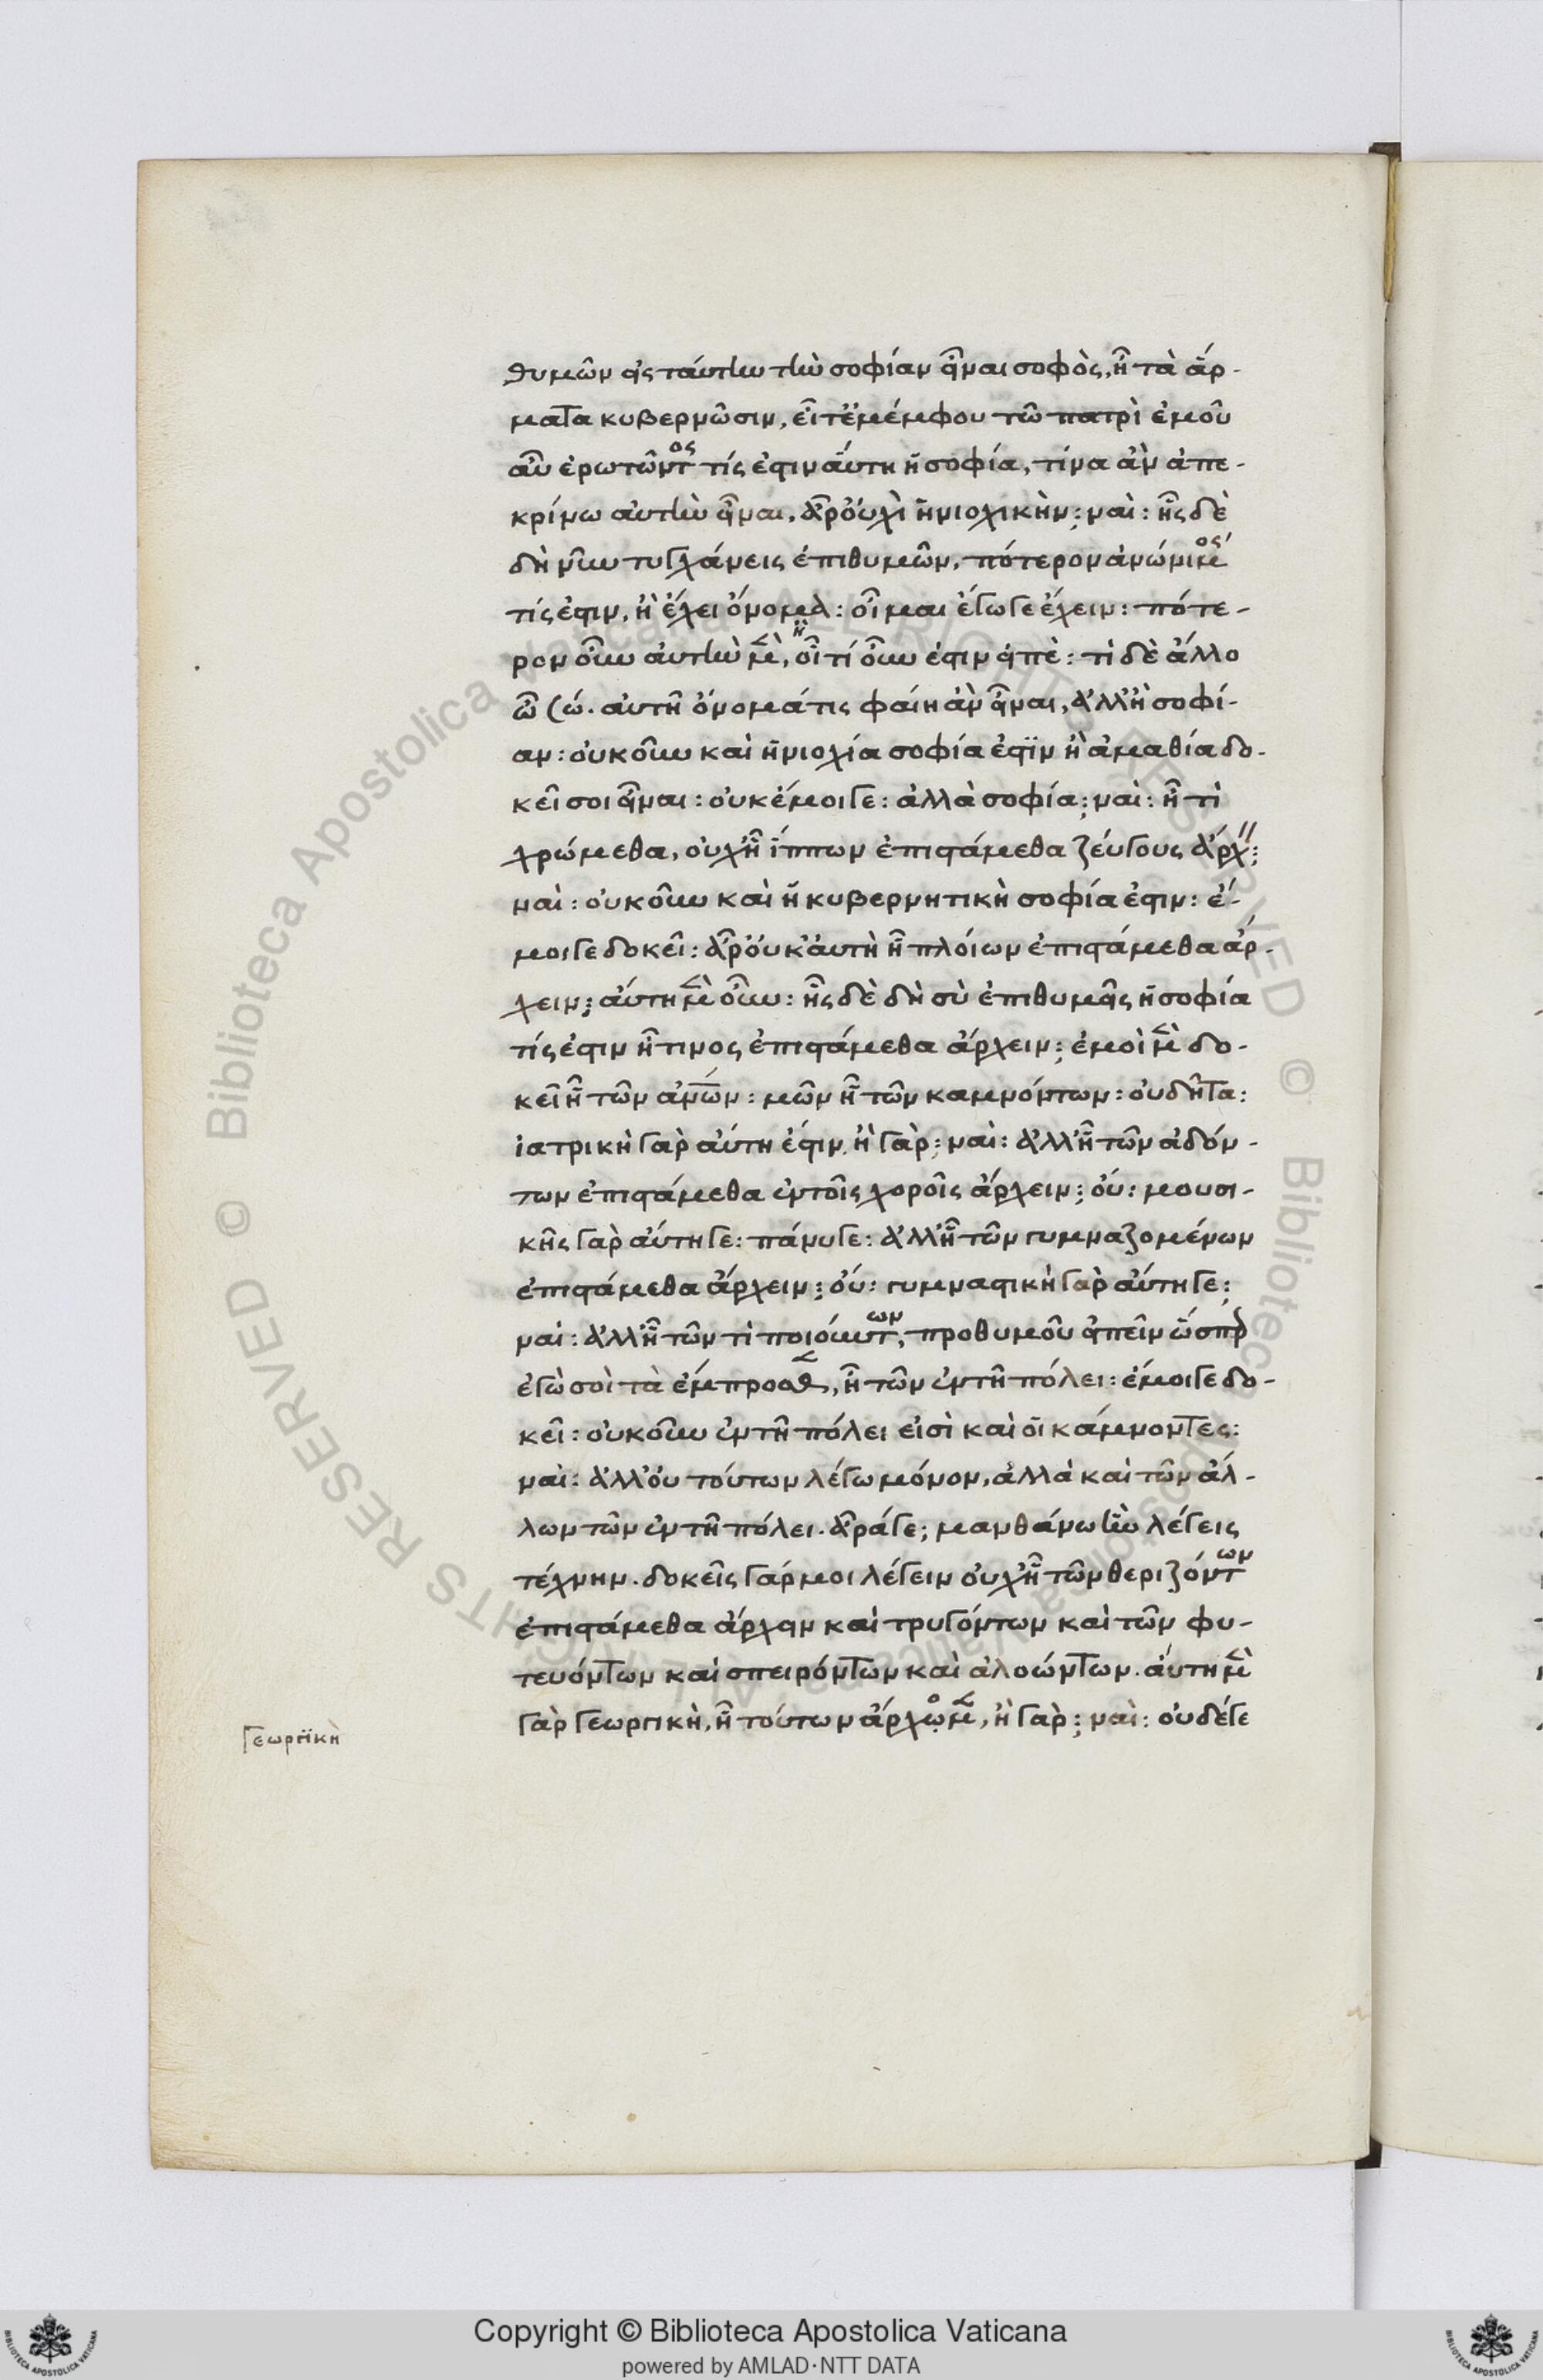 θυμῶν εἰς ταύτην τὴν σοφίαν εἶναι σοφὸς, ἧ τὰ ἅρ-
ματα κυβερνῶσιν, εἴ τε ἐμέμφου τῶ πατρὶ ἐμοῦ
αὖ ἐρωτῶντος τίς ἐστιν αὕτη ἡ σοφία, τίνα ἂν ἀπε-
κρίνω αὐτὴν εἶναι, ἆρ' οὐχὶ ἡνιοχικὴν; ναὶ: ἧς δὲ
δὴ νῦν τυγχάνεις ἐπιθυμῶν, πότερον ἀνώνυμος
τίς ἐστιν, ἢ ἔχει ὄνομα: οἶμαι ἔγωγε ἔχειν: πότε-
ρον οὖν αὐτὴν μὲν, οἷ τί οὖν ἐστιν εἰπὲ: τὶ δὲ ἄλλο
ὦ σώ. αὐτῆ ὄνομά τις φαίη ἂν εἶναι, ἀλλ' ἢ σοφί-
αν: οὐκοῦν καὶ ἡνιοχία σοφία ἐστὶν ἢ ἀμαθία δο-
κεῖ σοι εἶναι: οὐκ ἔμοιγε: ἀλλὰ σοφία; ναὶ: ἧ τὶ
χρώμεθα, οὐχ ἧ ἵππων ἐπιστάμεθα ζεύγους ἄρχ;
ναὶ: οὐκοῦν καὶ ἡ κυβερνητικὴ σοφία ἐστιν: ἔ-
μοιγε δοκεῖ: ἆρ' οὐκ αὐτὴ ἧ πλοίων ἐπιστάμεθα ἄρ-
χειν; αὕτη μὲν οὖν: ἧς δὲ δὴ σὺ ἐπιθυμεῖς ἡ σοφία
τίς ἐστιν ἧ τινος ἐπιστάμεθα ἄρχειν; ἐμοὶ μὲν δο-
κεῖ ἧ τῶν ἀνων: μῶν ἧ τῶν καμνόντων: οὐδῆτα:
ἰατρικὴ γὰρ αὕτη ἐστιν, ἢ γὰρ; ναὶ: ἀλλ' ἧ τῶν ἀδόν-
των ἐπιστάμεθα ἐν τοῖς χοροῖς ἄρχειν; οὔ: μουσι-
κῆς γὰρ αὕτη γε: πάνυ γε: ἀλλ' ἧ τῶν γυμναζομένων
ἐπιστάμεθα ἄρχειν; οὔ: γυμναστικὴ γὰρ αὕτη γε;
ναὶ: ἀλλ' ἧ τῶν τὶ ποιούντων, προθυμοῦ εἰπεῖν ὥσπερ
ἐγὼ σοὶ τὰ ἔμπροσθεν, ἧ τῶν ἐν τῆ πόλει: ἔμοιγε δο-
κεῖ: οὐκοῦν ἐν τῆ πόλει εἰσὶ καὶ οἱ κάμνοντες:
ναὶ: ἀλλ' οὐ τούτων λέγω μόνον, ἀλλὰ καὶ τῶν ἄλ-
λων τῶν ἐν τῆ πόλει. ἆρά γε; μανθάνω ἣν λέγεις
τέχνην. δοκεῖς γάρ μοι λέγειν οὐχ ἧ τῶν θεριζόντων
ἐπιστάμεθα ἄρχειν καὶ τρυγόντων καὶ τῶν φυ-
τευόντων καὶ σπειρόντων καὶ ἀλοώντων. αὕτη μὲν
γὰρ γεωργικὴ, ἧ τούτων ἄρχομεν, ἢ γὰρ; ναὶ: οὐδέ γε
γεωργικὴ